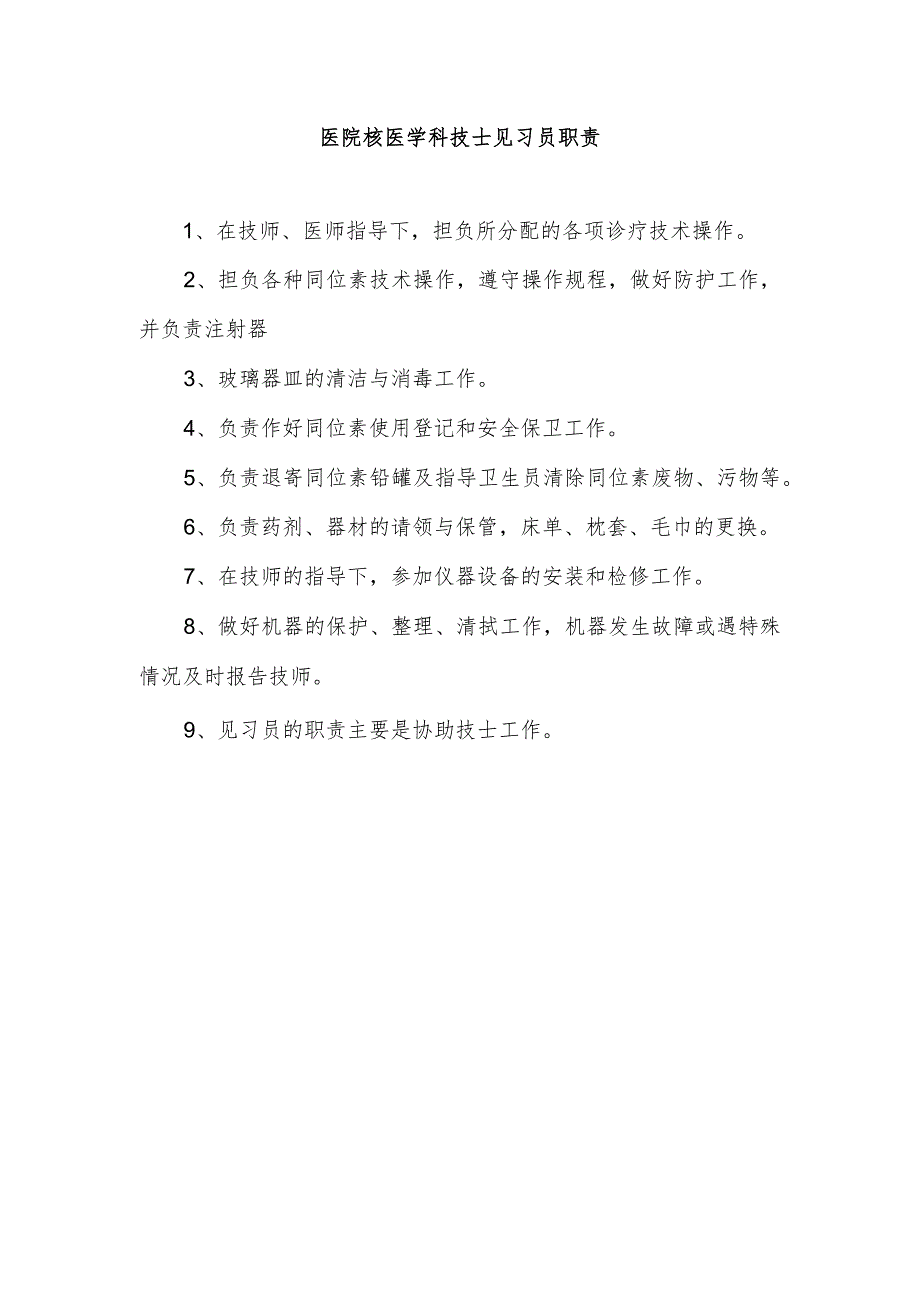 医院核医学科技士见习员职责
1、在技师、医师指导下，担负所分配的各项诊疗技术操作。
2、担负各种同位素技术操作，遵守操作规程，做好防护工作，
并负责注射器
3、玻璃器皿的清洁与消毒工作。
4、负责作好同位素使用登记和安全保卫工作。
5、负责退寄同位素铅罐及指导卫生员清除同位素废物、污物等。
6、负责药剂、器材的请领与保管，床单、枕套、毛巾的更换。
7、在技师的指导下，参加仪器设备的安装和检修工作。
8、做好机器的保护、整理、清拭工作，机器发生故障或遇特殊
情况及时报告技师。
9、见习员的职责主要是协助技士工作。